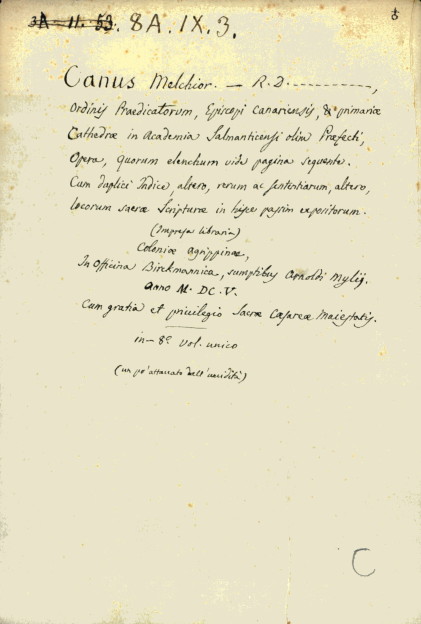 3A - 11. 53. 8A. IX. 3.
Canus Melchior. — R. D. - - - - - - - - - - - ,
Ordinis Praedicatorum, Episcopi Canariensis, & primariæ
Cathedræ in Academia Salmanticensi olim Præfecti,
Opera, quorum elenchum vide pagina sequente.
Cum duplici Indice, altero, rerum ac sententiarum, altero,
locorum sacræ Scripturæ in hisce passim expositorum.
(Impresa libraria)
Coloniæ agrippinæ,
In Officina Birckmannica, sumptibus Arnoldi Mylij.
Anno M. DC. V.
Cum gratia et privilegio Sacræ Cæsareæ Maiestatis.
in-8º vol. unico
(un po' attaccato dall'umidità)
C